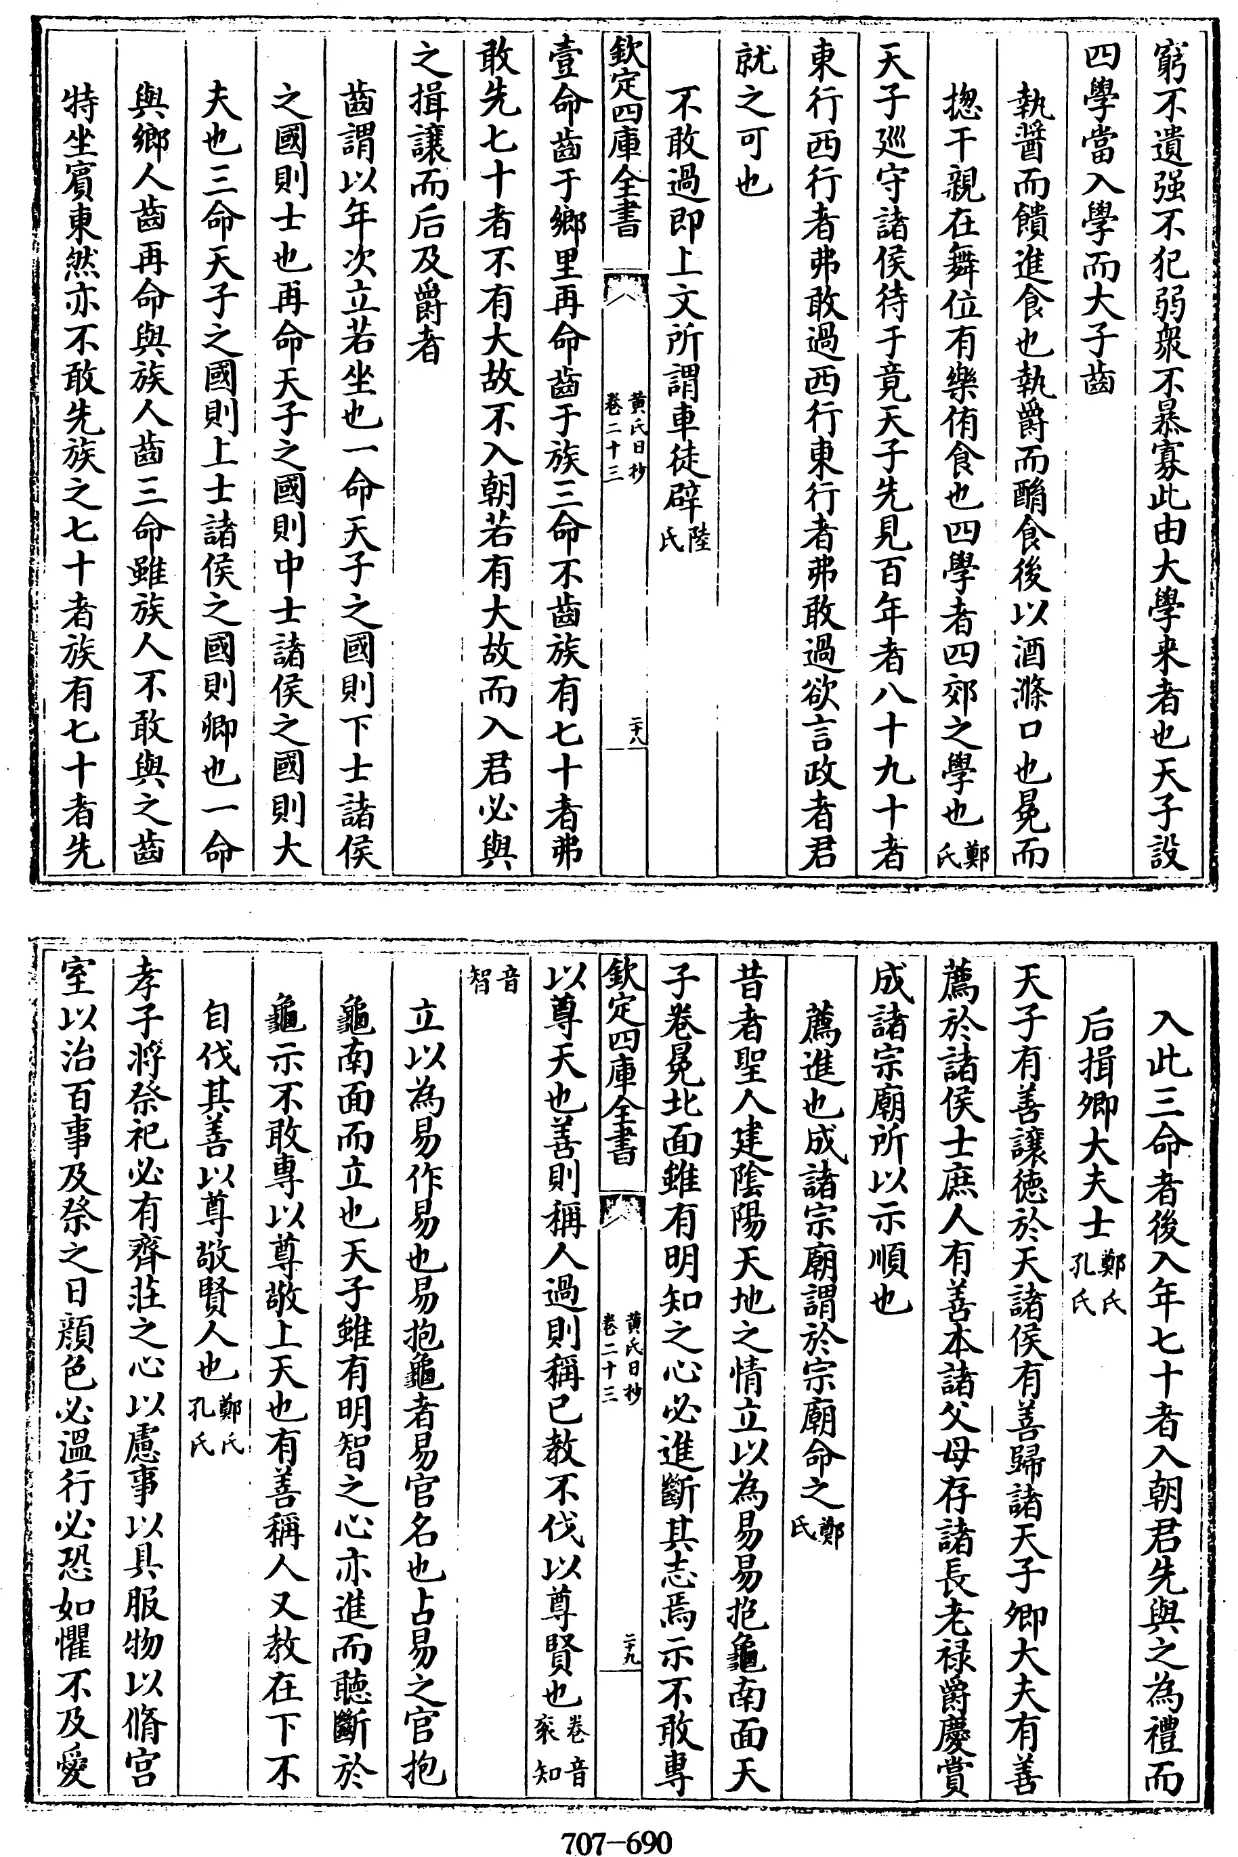 窮不遺强不犯弱衆不暴寡此由大學来者也天子設
四學當入學而大子齒
執醬而饋進食也執爵而酳食後以酒滌口也冕而
揔干親在舞位有樂侑食也四學者四郊之學也鄭氏
天子廵守諸侯待于竟天子先見百年者八十九十者
東行西行者弗敢過西行東行者弗敢過欲言政者君
就之可也
不敢過即上文所謂車徒辟陸氏
欽定四庫全書
黄氏日抄
卷二十三
二十八
壹命齒于鄉里再命齒于族三命不齒族有七十者弗
敢先七十者不有大故不入朝若有大故而入君必與
之揖讓而后及爵者
齒謂以年次立若坐也一命天子之國則下士諸侯
之國則士也再命天子之國則中士諸侯之國則大
夫也三命天子之國則上士諸侯之國則卿也一命
與鄉人齒再命與族人齒三命雖族人不敢與之齒
特坐賓東然亦不敢先族之七十者族有七十者先
入此三命者後入年七十者入朝君先與之為禮而
后揖卿大夫士鄭氏孔氏
天子有善讓徳於天諸侯有善歸諸天子卿大夫有善
薦於諸侯士庶人有善本諸父母存諸長老禄爵慶賞
成諸宗廟所以示順也
薦進也成諸宗廟謂於宗廟命之鄭氏
昔者聖人建隂陽天地之情立以為易易抱龜南面天
子卷冕北面雖有明知之心必進斷其志焉示不敢專
欽定四庫全書
黄氏日抄
卷二十三
二十九
以尊天也善則稱人過則稱已教不伐以尊賢也卷音衮知
音智
立以為易作易也易抱龜者易官名也占易之官抱
龜南面而立也天子雖有明智之心亦進而聴斷於
龜示不敢專以尊敬上天也有善稱人又教在下不
自伐其善以尊敬賢人也鄭氏孔氏
孝子將祭祀必有齊莊之心以慮事以具服物以脩宫
室以治百事及祭之日顔色必温行必恐如懼不及愛
707-690